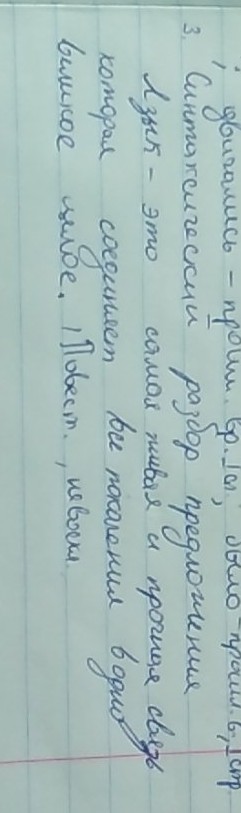 двигались – прош. вр. I сп., было – прош. в., I спр
3. Синтаксический разбор предложения
Язык – это самая живая и прочная связь
которая соединяет все поколения в одно
великое целое. / Повест., невоскл.